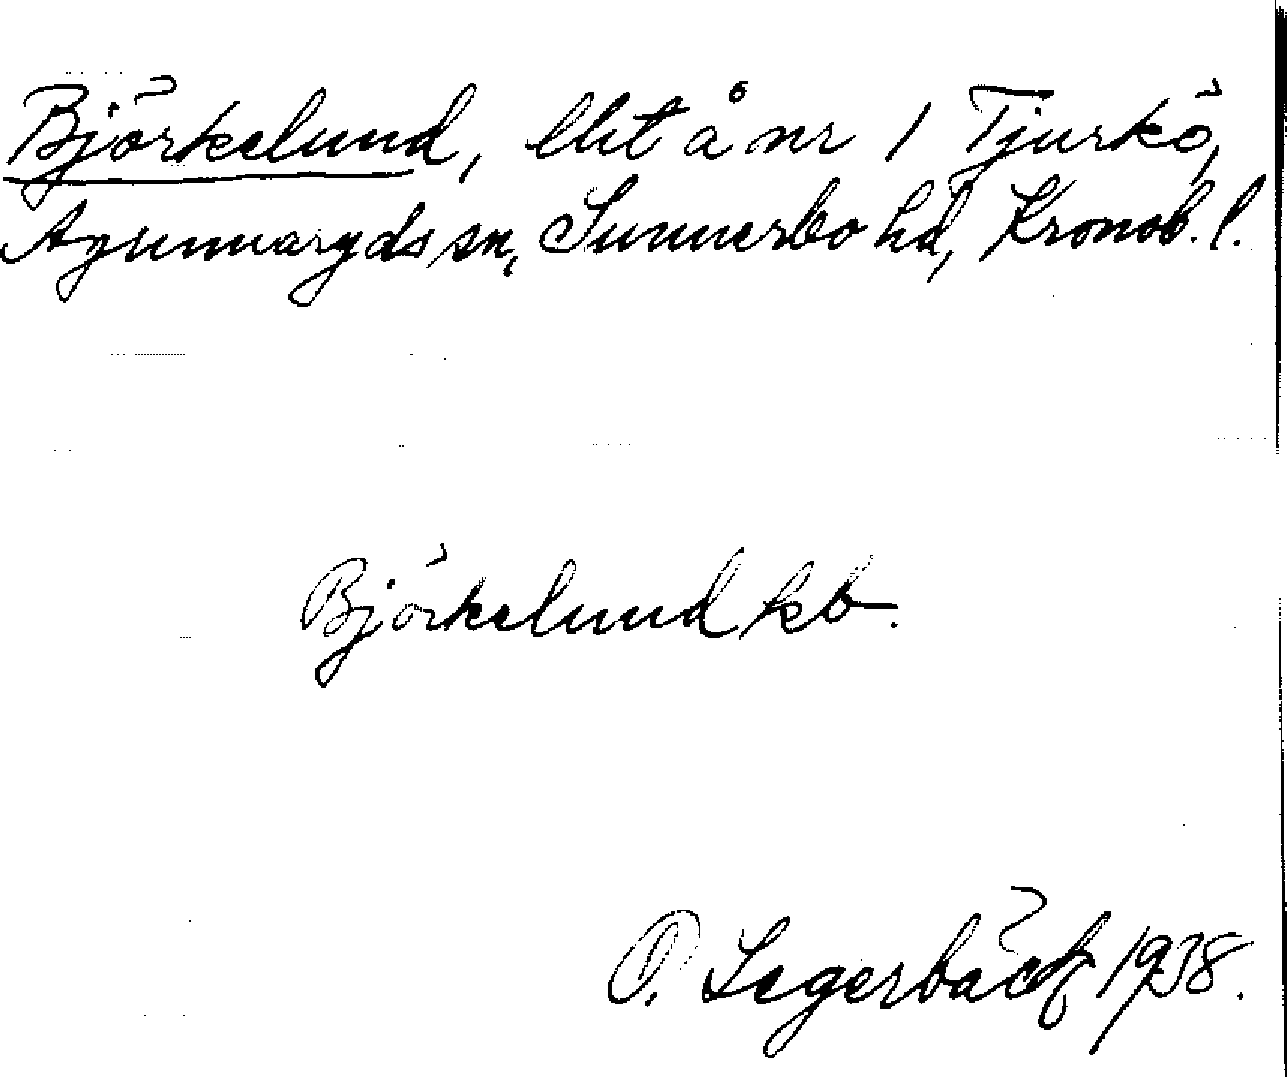 Björkelund, lht å nr 1 Tjurkö,
Agunnaryds sn, Sunnerbo hd, Kronob. l.
Björkelund kb.
O. Lagerbäck 1938.